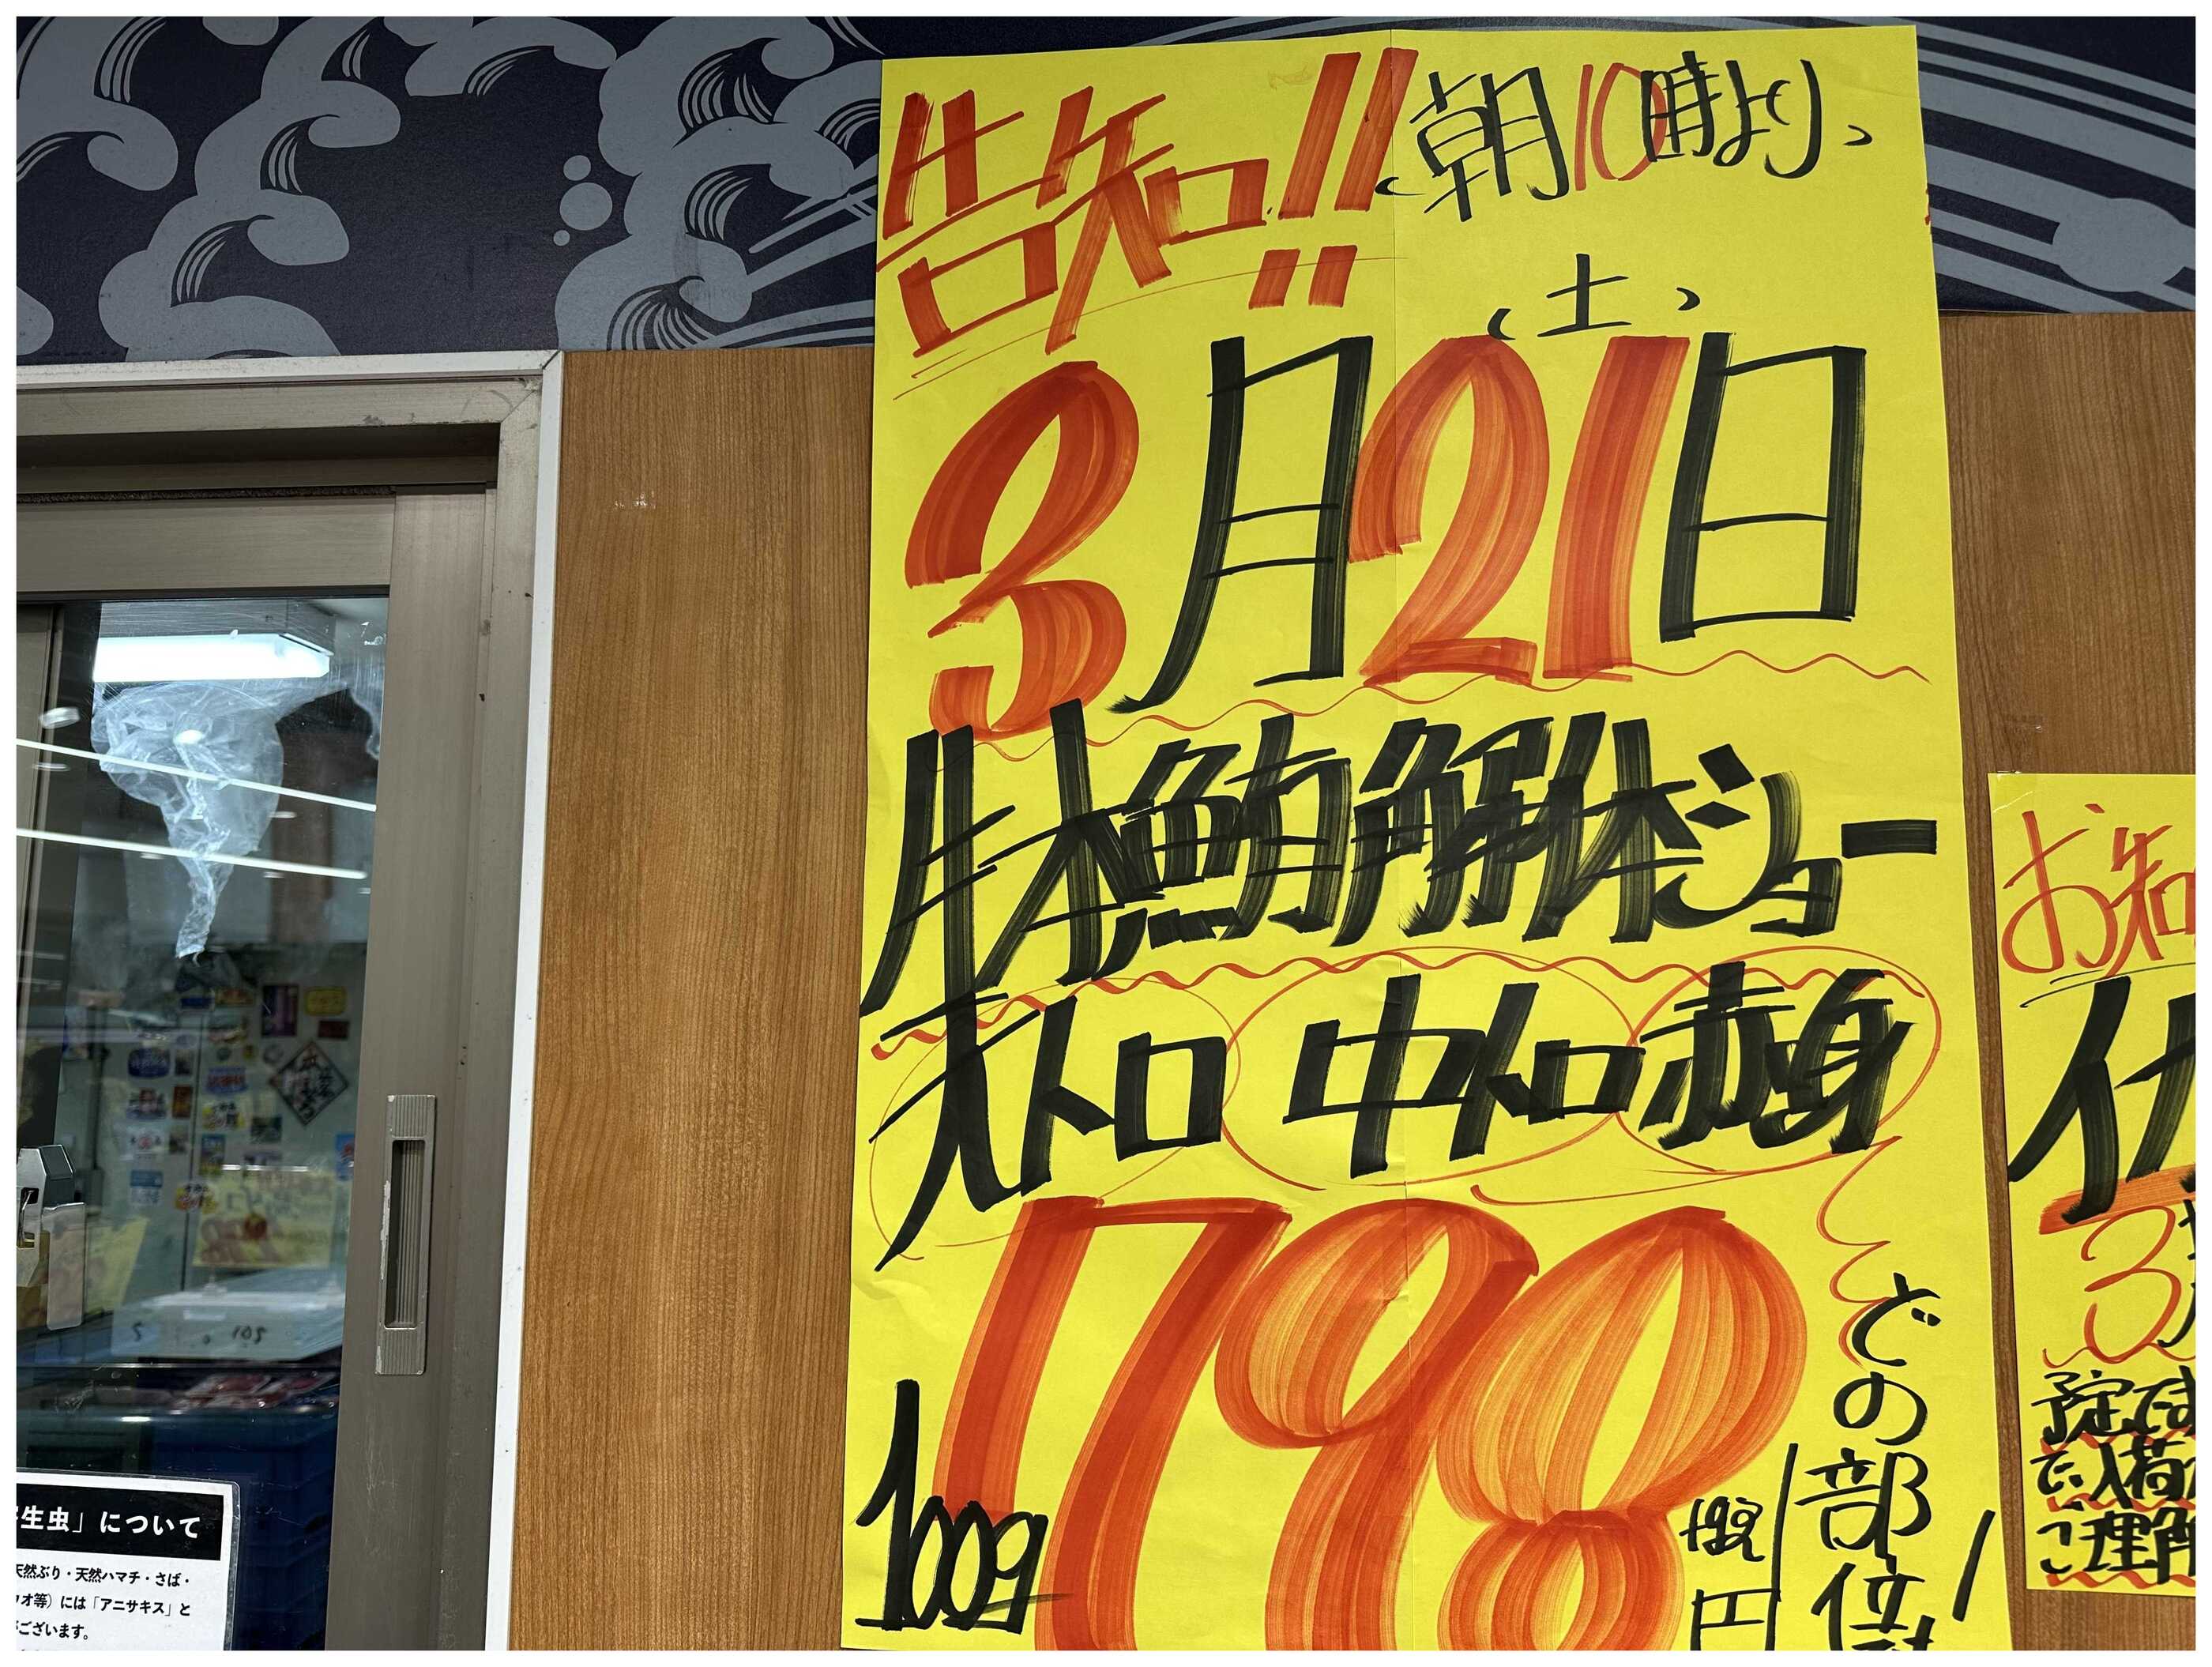 告知!!
(朝10時より)
(土)
3月21日
生本鮪解体ショー
大トロ 中トロ 赤身
798
100g
税込
円
どの部位も
お知
3
予定です
で、入荷
ご理解
生虫」について
天然ぶり・天然ハマチ・さば・
ウオ等)には「アニサキス」と
ございます。